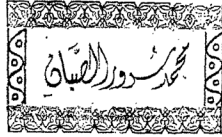 محمد سرور الصبّان